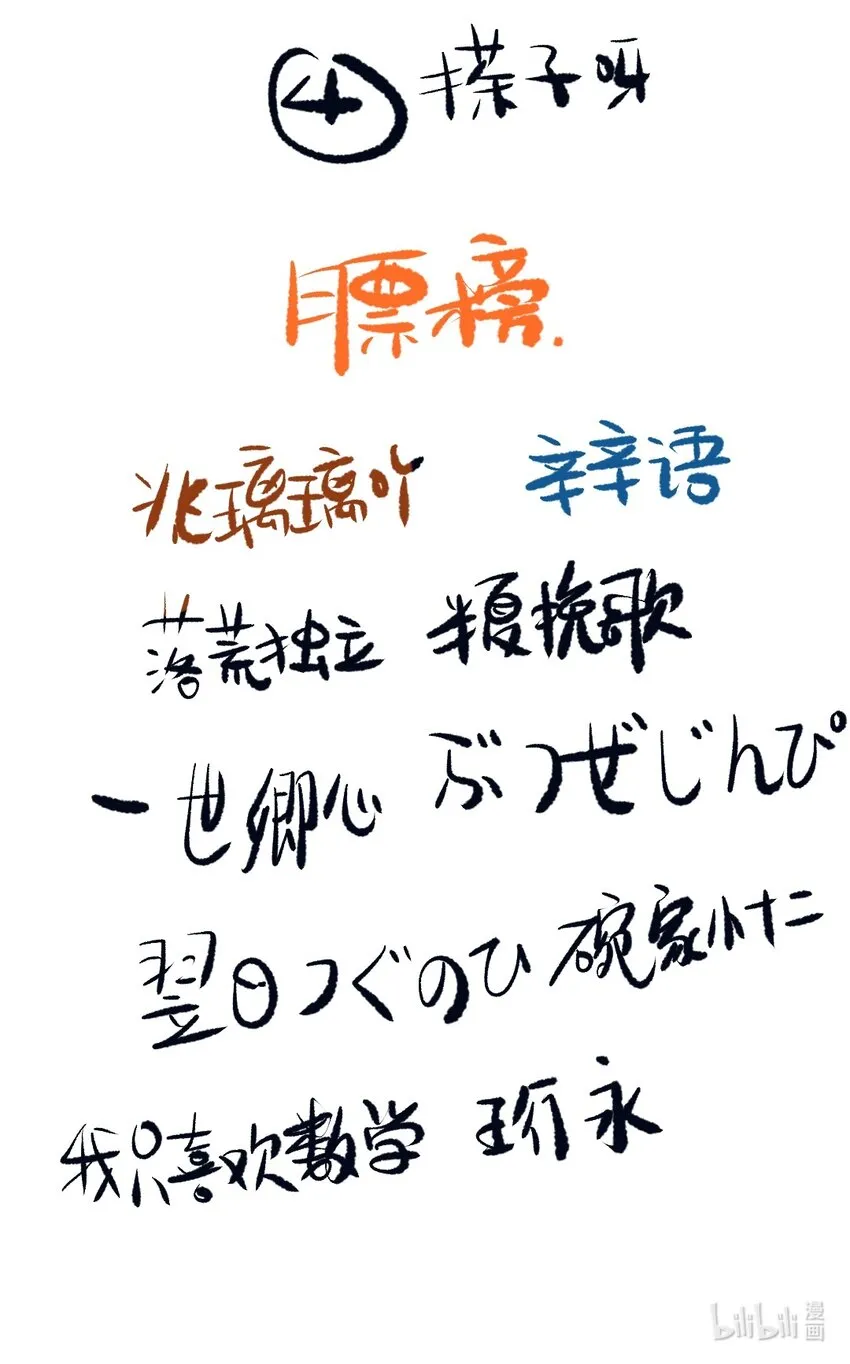 ④ 搽子呀
膘榜.
兆璃璃吖 辛辛语
落荒独立 半夏挽歌
一世卿心 ぶつぜじんぴ
翌日つぐのひ 碗家小十二
我只喜欢数学 玠永
bilibili 漫画